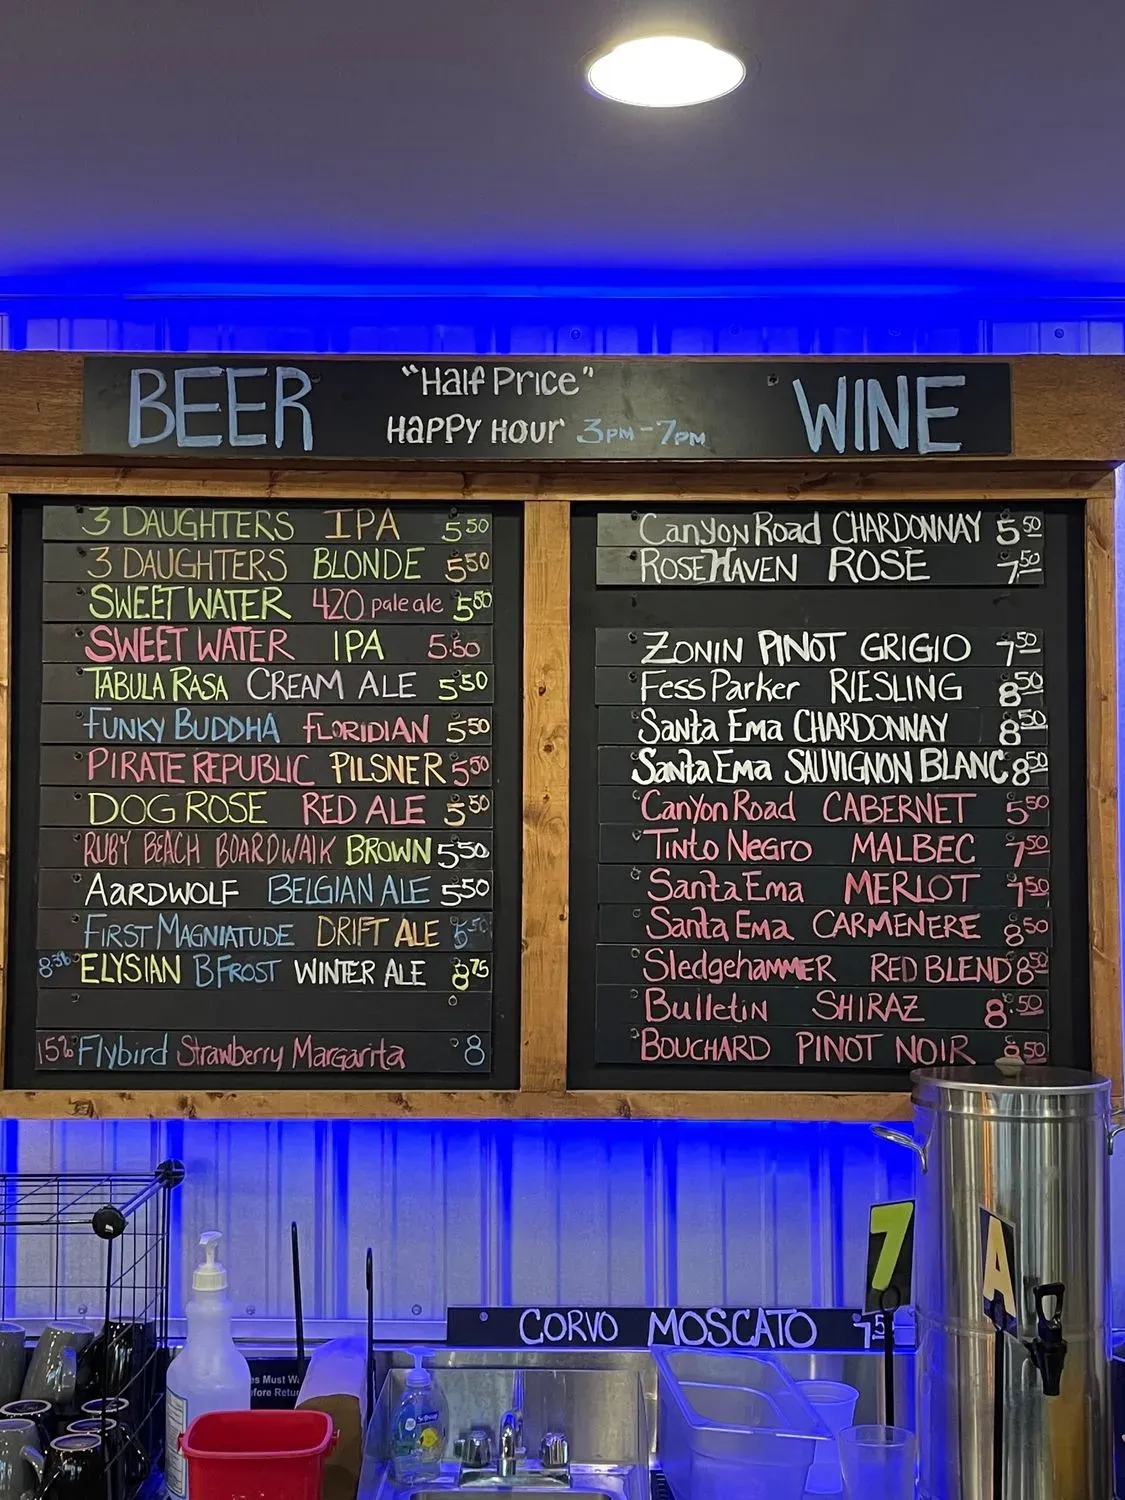 BEER
"Half Price"
HAPPY HOUR 3PM-7PM
WINE
3 DAUGHTERS IPA 5 50
3 DAUGHTERS BLONDE 5 50
SWEET WATER 420 pale ale 5 50
SWEET WATER IPA 5.50
TABULA RASA CREAM ALE 5 50
FUNKY BUDDHA FLORIDIAN 5 50
PIRATE REPUBLIC PILSNER 5 50
DOG ROSE RED ALE 5 50
RUBY BEACH BOARDWAlK BROWN 5 50
AARDWOLF BELGIAN ALE 5 50
FIRST MAGNIATUDE DRIFT ALE
ELYSIAN BFROST WINTER ALE 8 75
15% Flybird Strawberry Margarita 8
Canyon Road CHARDONNAY 5 50
ROSEHAVEN ROSE 7.50
ZONIN PINOT GRIGIO 7 50
Fess Parker RIESLING 8 50
Santa Ema CHARDONNAY 8 50
Santa Ema SAUVIGNON BLANC 8 50
Canyon Road CABERNET 5 50
Tinto Negro MALBEC 7 50
Santa Ema MERLOT 7 50
Santa Ema CARMENERE 8 50
Sledgehammer RED BLEND 8 50
Bulletin SHIRAZ 8.50
BOUCHARD PINOT NOIR 8 50
7
A
CORVO MOSCATO 7 5
es Must Wa
efore Retur